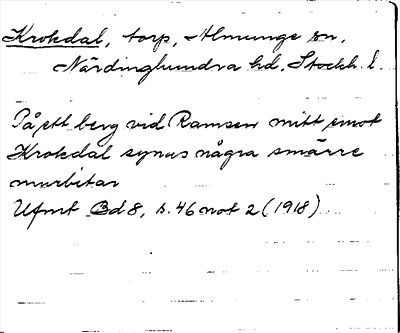 Krokdal, torp, Almunge sn,
Närdinghundra hd, Stockh. l.
På ett berg vid Ramsen mitt emot
Krokdal synas några smärre
murbitar
Ufmt Bd 8, s. 46 not 2 (1918)